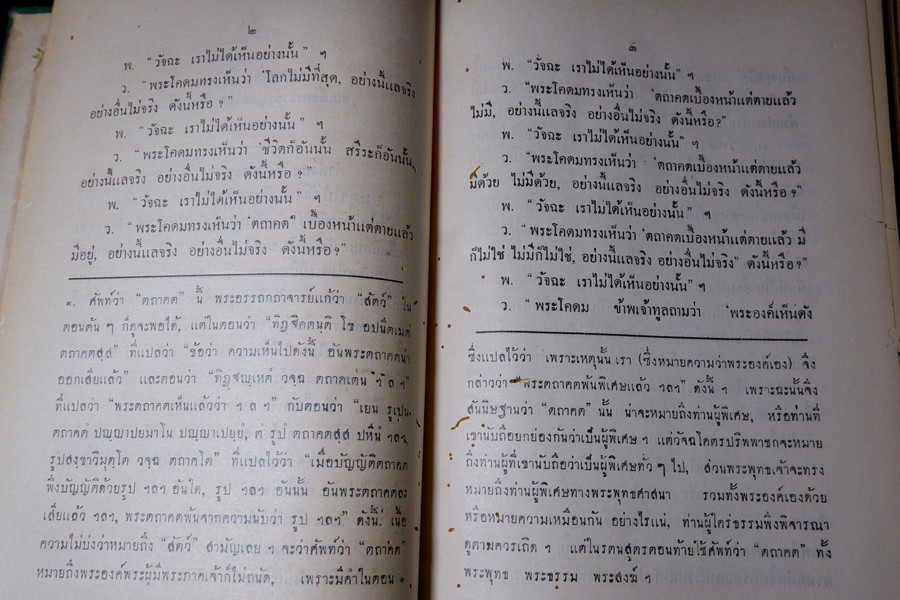 ๒
พ. “วัจฉะ เราไม่ได้เห็นอย่างนั้น” ฯ
ว. “พระโคดมทรงเห็นว่า ‘โลกไม่มีที่สุด, อย่างนี้แลจริง
อย่างอื่นไม่จริง ดังนี้หรือ ?”
พ. “วัจฉะ เราไม่ได้เห็นอย่างนั้น” ฯ
ว. “พระโคดมทรงเห็นว่า ‘ชีวิตก็อันนั้น สรีระก็อันนั้น,
อย่างนี้แลจริง อย่างอื่นไม่จริง ดังนี้หรือ ?”
พ. “วัจฉะ เราไม่ได้เห็นอย่างนั้น” ฯ
ว. “พระโคดมทรงเห็นว่า ‘ตถาคต เบื้องหน้าแต่ตายแล้ว
มีอยู่, อย่างนี้แลจริง อย่างอื่นไม่จริง ดังนี้หรือ ?”
๑. ศัพท์ว่า “ตถาคต” นี้ พระอรรถกถาจารย์แก้ว่า “สัตว์” ใน
ตอนต้น ๆ ก็ดูจะพอได้, แต่ในตอนว่า “ทิฏฺฐิคตนฺติ โข อปนีตเมตํ
ตถาคตสฺส” ที่แปลว่า “ข้อว่า ความเห็นไปดังนี้ อันพระตถาคตนำ
ออกเสียแล้ว” และตอนว่า “ทิฏฺฐญฺเหตํ วจฺฉ ตถาคเตน
ที่แปลว่า “พระตถาคตเห็นแล้วว่า ฯ ล ฯ” กับตอนว่า “เยน รูเปน,
ตถาคตํ ปญฺญาปยมาโน ปญฺญาเปยฺย, ตํ รูปํ ตถาคตสฺส ปหีนํ ฯลฯ,
รูปสงฺขาวิมุตฺโต วจฺฉ ตถาคโต” ที่แปลไว้ว่า “เมื่อบัญญัติตถาคต
พึงบัญญัติด้วยรูป ฯลฯ อันใด, รูป ฯลฯ อันนั้น อันพระตถาคตละ
เสียแล้ว ฯลฯ, พระตถาคตพ้นจากความนับว่า รูป ฯลฯ” ดังนี้: เนื้อ
ความไม่บ่งว่าหมายถึง “สัตว์” สามัญเลย ฯ จะว่าศัพท์ว่า “ตถาคต”
หมายถึงพระองค์พระผู้มีพระภาคเจ้าก็ไม่ถนัด, เพราะมีคำในตอน ฯ
๓
พ. “วัจฉะ เราไม่ได้เห็นอย่างนั้น” ฯ
ว. “พระโคดมทรงเห็นว่า ‘ตถาคตเบื้องหน้าแต่ตายแล้ว
ไม่มี, อย่างนี้แลจริง อย่างอื่นไม่จริง ดังนี้หรือ?”
พ. “วัจฉะ เราไม่ได้เห็นอย่างนั้น” ฯ
ว. “พระโคดมทรงเห็นว่า ‘ตถาคตเบื้องหน้าแต่ตายแล้ว
มีด้วย ไม่มีด้วย, อย่างนี้แลจริง อย่างอื่นไม่จริง ดังนี้หรือ ?”
พ. “วัจฉะ เราไม่ได้เห็นอย่างนั้น” ฯ
ว. “พระโคดมทรงเห็นว่า ‘ตถาคตเบื้องหน้าแต่ตายแล้ว มี
ก็ไม่ใช่ ไม่มีก็ไม่ใช่, อย่างนี้แลจริง อย่างอื่นไม่จริง” ดังนี้หรือ?”
พ. “วัจฉะ เราไม่ได้เห็นอย่างนั้น” ฯ
ว. “พระโคดม ข้าพเจ้าทูลถามว่า ‘พระองค์เห็นดัง
ซึ่งแปลไว้ว่า เพราะเหตุนั้น เรา (ซึ่งหมายความว่าพระองค์เอง) จึง
กล่าวว่า “พระตถาคตพ้นพิเศษแล้ว ฯลฯ” ดังนี้ ฯ เพราะฉะนั้นจึง
สันนิษฐานว่า “ตถาคต” นั้น น่าจะหมายถึงท่านผู้พิเศษ, หรือท่านที่
เขานับถือยกย่องกันว่าเป็นผู้พิเศษ ฯ แต่วัจฉโคตรปริพพาชกจะหมาย
ถึงท่านผู้ที่เขานับถือว่าเป็นผู้พิเศษทั่ว ๆ ไป, ส่วนพระพุทธเจ้าจะทรง
หมายถึงท่านผู้พิเศษทางพระพุทธศาสนา รวมทั้งพระองค์เองด้วย
หรือหมายความเหมือนกัน อย่างไรแน่, ท่านผู้ใคร่ธรรมพึงพิจารณา
ดูตามควรเถิด ฯ แต่ในรตนสูตรตอนท้ายใช้ศัพท์ว่า “ตถาคต” ทั้ง
พระพุทธ พระธรรม พระสงฆ์ ฯ